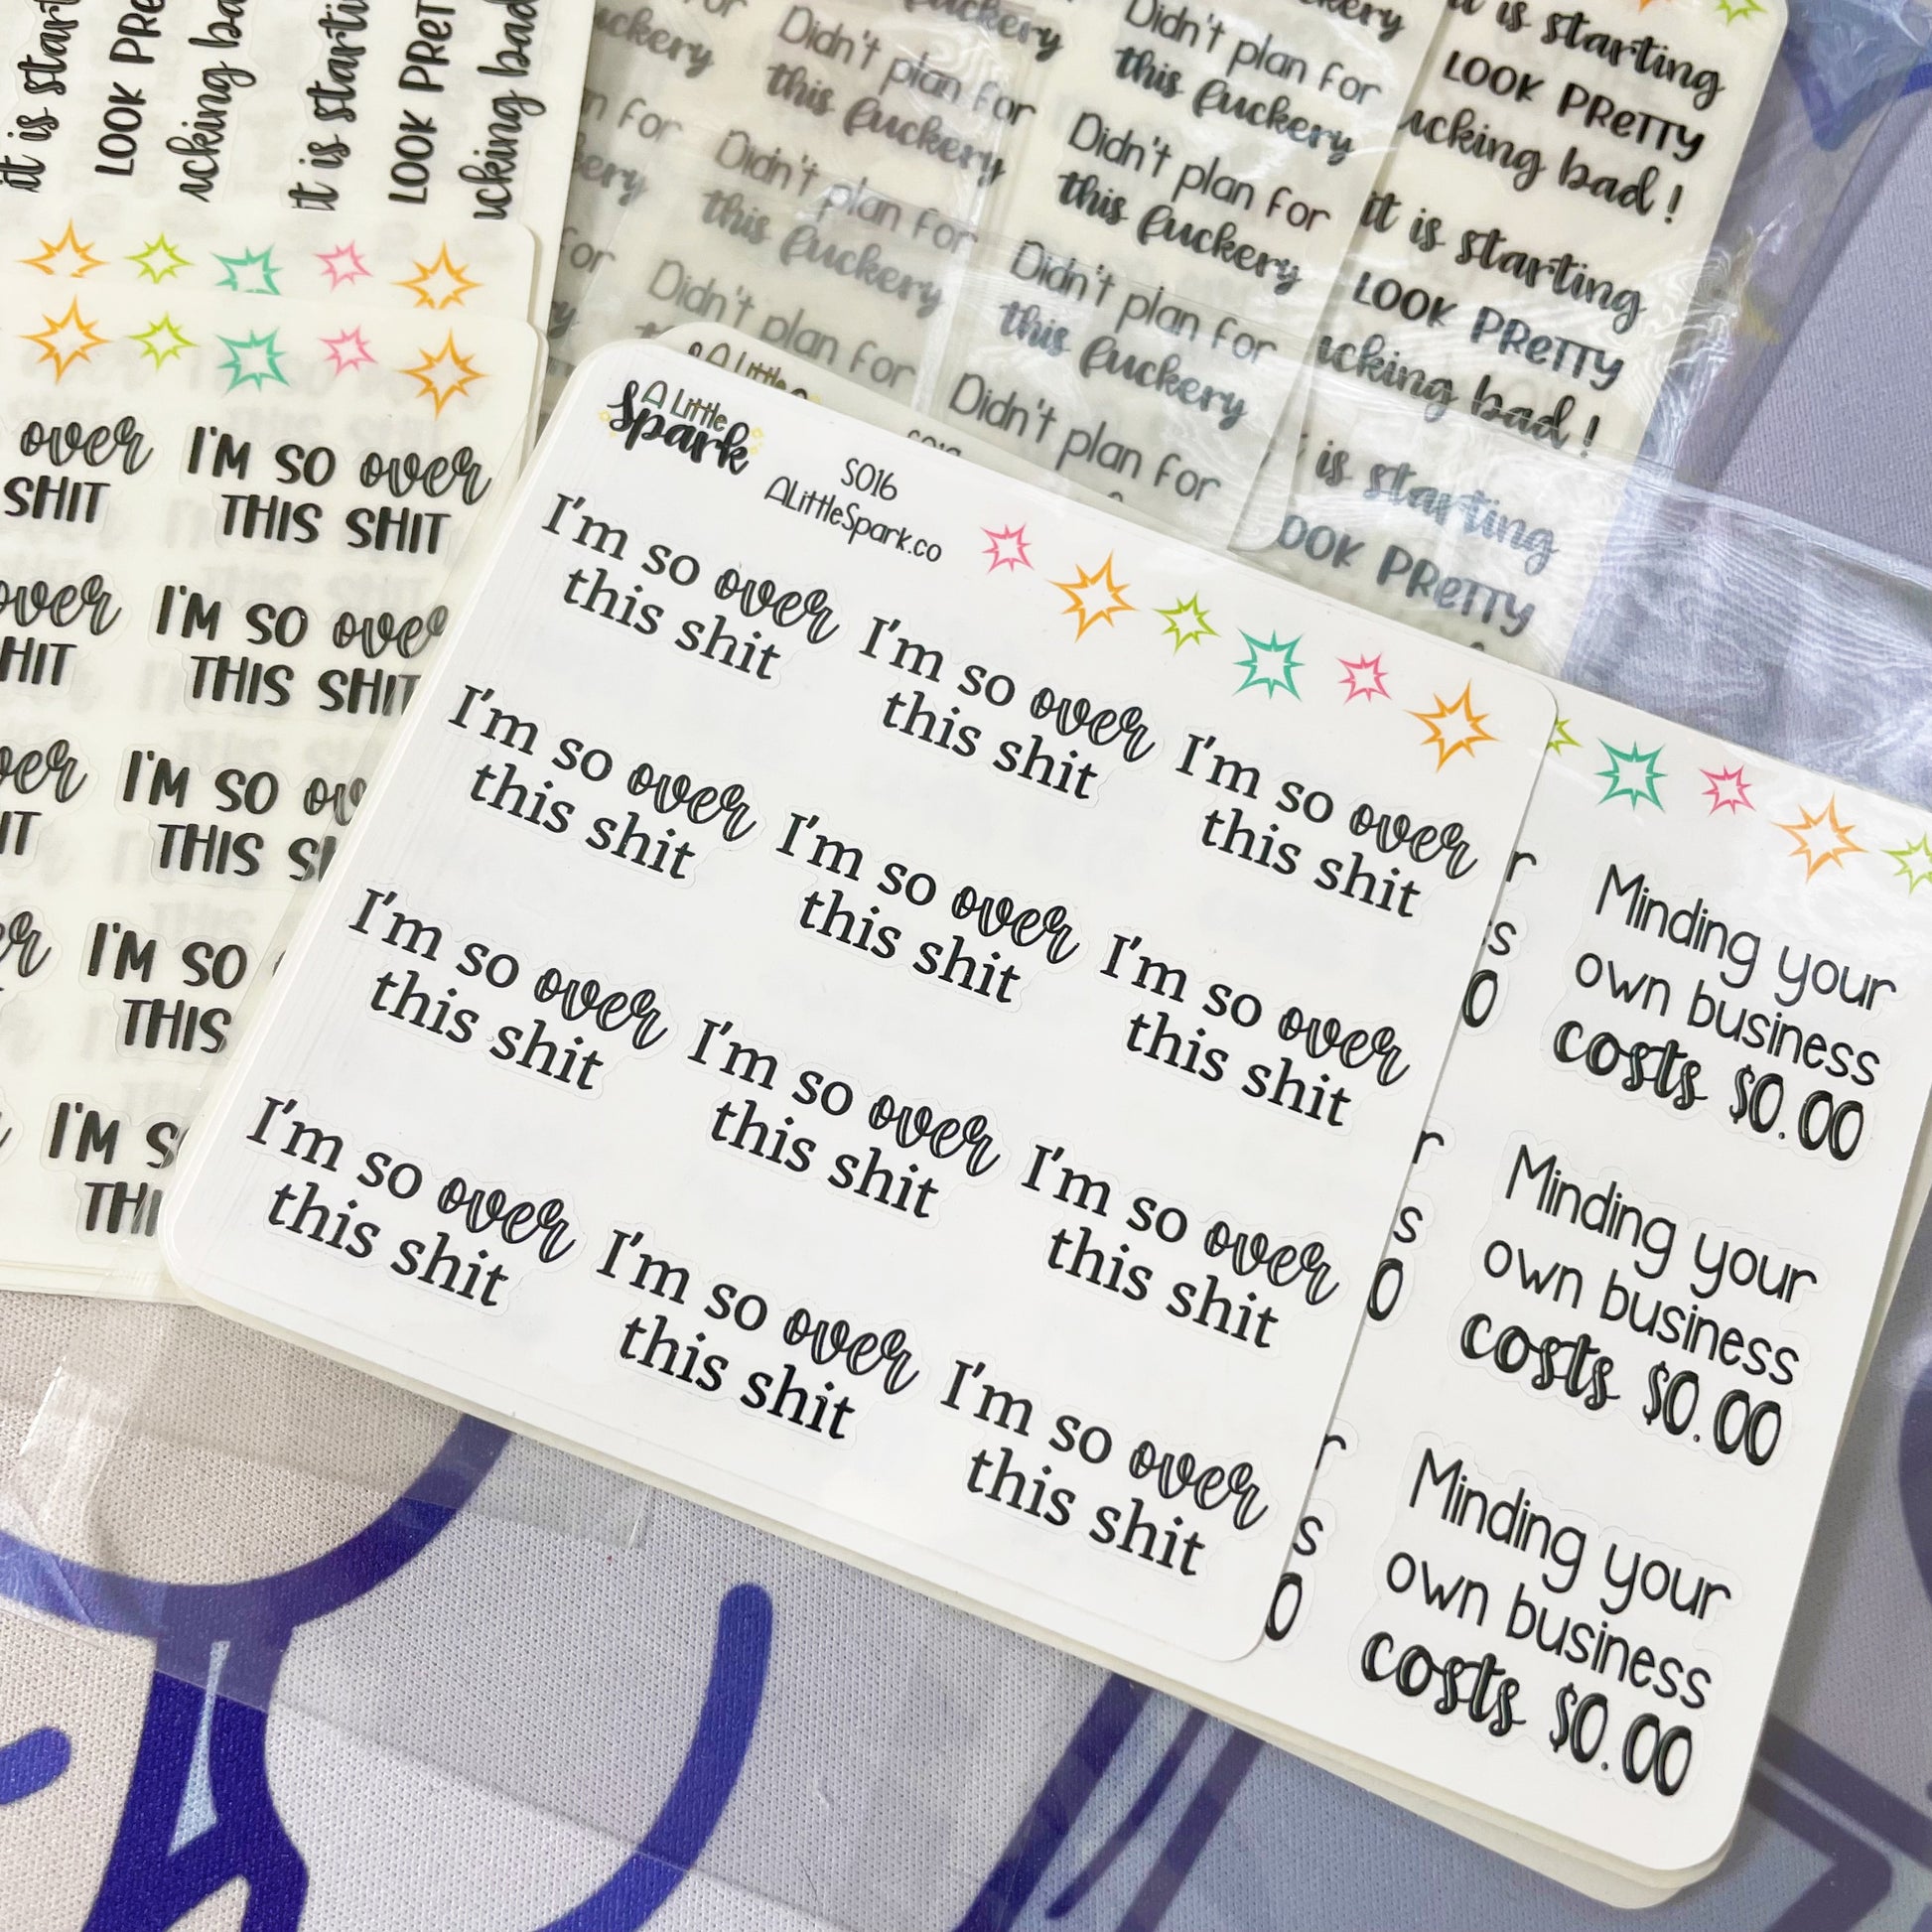 it is starting
LOOK PRETTY
it is starting
LOOK PRETTY
over
SHIT
I'M SO over
THIS SHIT
over
I'M SO over
THIS SHIT
I'M SO
THIS
I'M SO
THIS
for
Didn't plan for
this fuckery
Didn't plan for
this fuckery
Didn't plan for
Didn't plan for
this fuckery
Didn't plan for
this fuckery
Didn't plan for
this fuckery
Didn't plan for
it is starting
LOOK PRETTY
bad!
it is starting
LOOK PRETTY
bad!
is starting
PRETTY
A Little
A Little
Spark
S016
ALittleSpark.co
I'm so over
this shit
I'm so over
this shit
I'm so over
this shit
I'm so over
this shit
I'm so over
this shit
I'm so over
this shit
I'm so over
this shit
I'm so over
this shit
I'm so over
this shit
I'm so over
this shit
I'm so over
this shit
I'm so over
this shit
Minding your
own business
costs $0.00
Minding your
own business
costs $0.00
Minding your
own business
costs $0.00